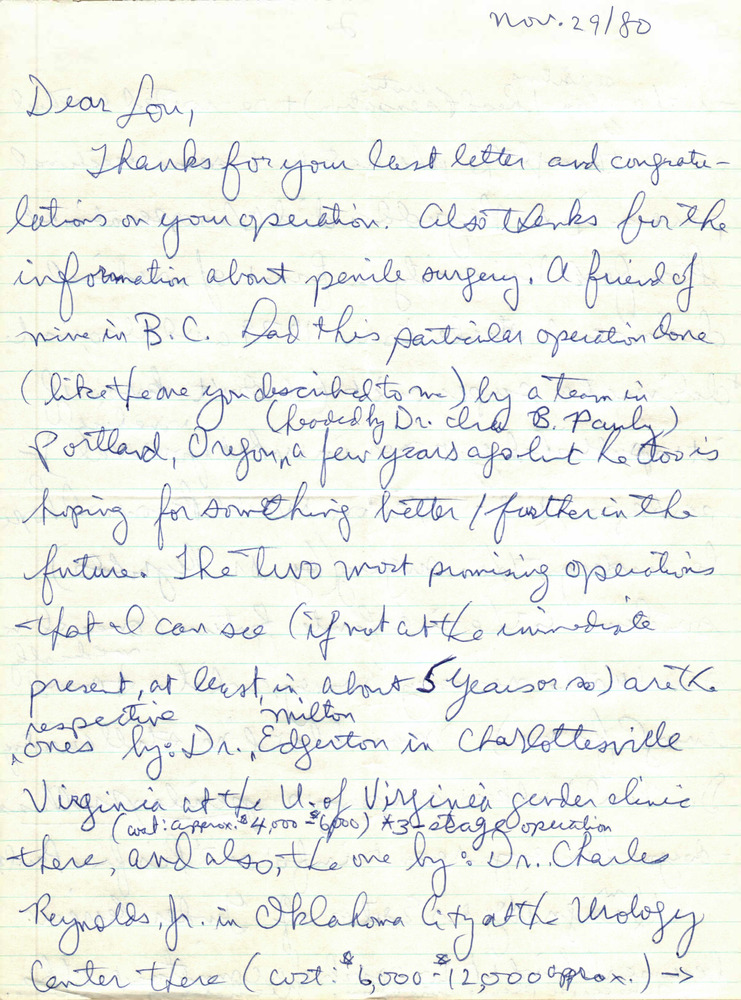 Nov. 29/80
Dear Lou,
Thanks for your last letter and congratu-
lations on your operation. Also thanks for the
information about penile surgery. A friend of
mine in B.C. had this particular operation done
(like the one you described to me) by a team in
(headed by Dr. Ira B. Pauly)
Portland, Oregon, ^ a few years ago but he too is
hoping for something better / further in the
future. The two most promising operations
that I can see (if not at the immediate
present, at least, in about 5 years or so) are the
respective milton
^ ones by: Dr. ^ Edgerton in Charlottesville
Virginia at the U. of Virginia gender clinic
(cost: approx. $4,000 - $6,000) *3-stage operation
there, and also, the one by: Dr. Charles
Reynolds, Jr. in Oklahoma City at the Urology
Center there (cost: $6,000 - $12,000 approx.) →